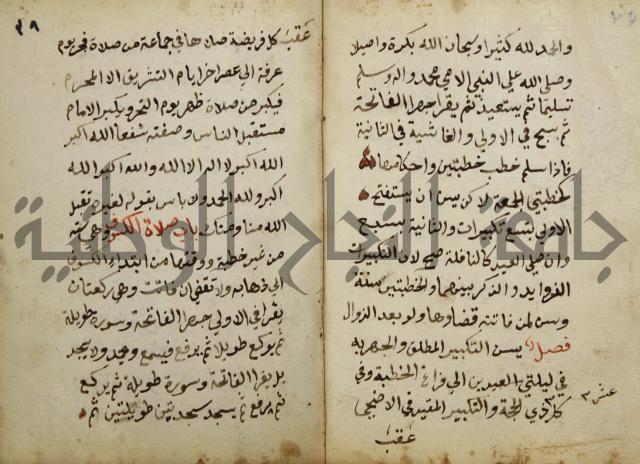 والحمد لله كثيرا وسبحان الله بكرة واصيلا
وصلى الله على النبي الامي محمد واله وسلم
تسليما ثم يستعيذ ثم يقرا جهرا الفاتحة
ثم سبح في الاولى والغاشية في الثانية
فاذا سلم خطب خطبتين واحكامهما
كخطبتي الجمعة لاكن يسن ان يستفتح
الاولى بتسع تكبيرات والثانية بسبع
وان صلى العيد كالنافلة صح لان التكبيرات
الزوايد والذكر بينهما والخطبتين سنة
وسن لمن فاتته قضاوها ولو بعد الزوال
فصل يسن التكبير المطلق والجهر به
في ليلتي العيدين الى فراغ الخطبة وفي
كل ذي الحجة والتكبير المقيد في الاضحى
عشر
عقب
٣٩
عقب كل فريضة صلاها في جماعة من صلاة فجر يوم
عرفة الى عصر اخر ايام التشريق الا المحرم
فيكبر من صلاة ظهر يوم النحر ويكبر الامام
مستقبل الناس وصفته شفعا الله اكبر
الله اكبر لا اله الا الله والله اكبر الله
اكبر ولله الحمد ولا باس بقوله لغيره تقبل
الله منا ومنك باب صلاة الكسوف وهي سنة
من غير خطبة ووقتها من ابتداء الكسوف
الى ذهابه ولا تقضى ان فاتت وهي ركعتان
يقرا في الاولى جهرا الفاتحة وسورة طويلة
ثم يركع طويلا ثم يرفع فيسمع ويحمد ولا يسجد
بل يقرا الفاتحة وسورة طويلة ثم يركع
ثم يرفع ثم يسجد سجدتين طويلتين ثم
جامعة النجاح الوطنية